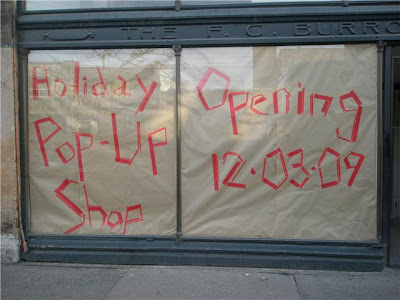 THE F. C. BURRO
Holiday
Pop-Up
Shop
Opening
12.03.09